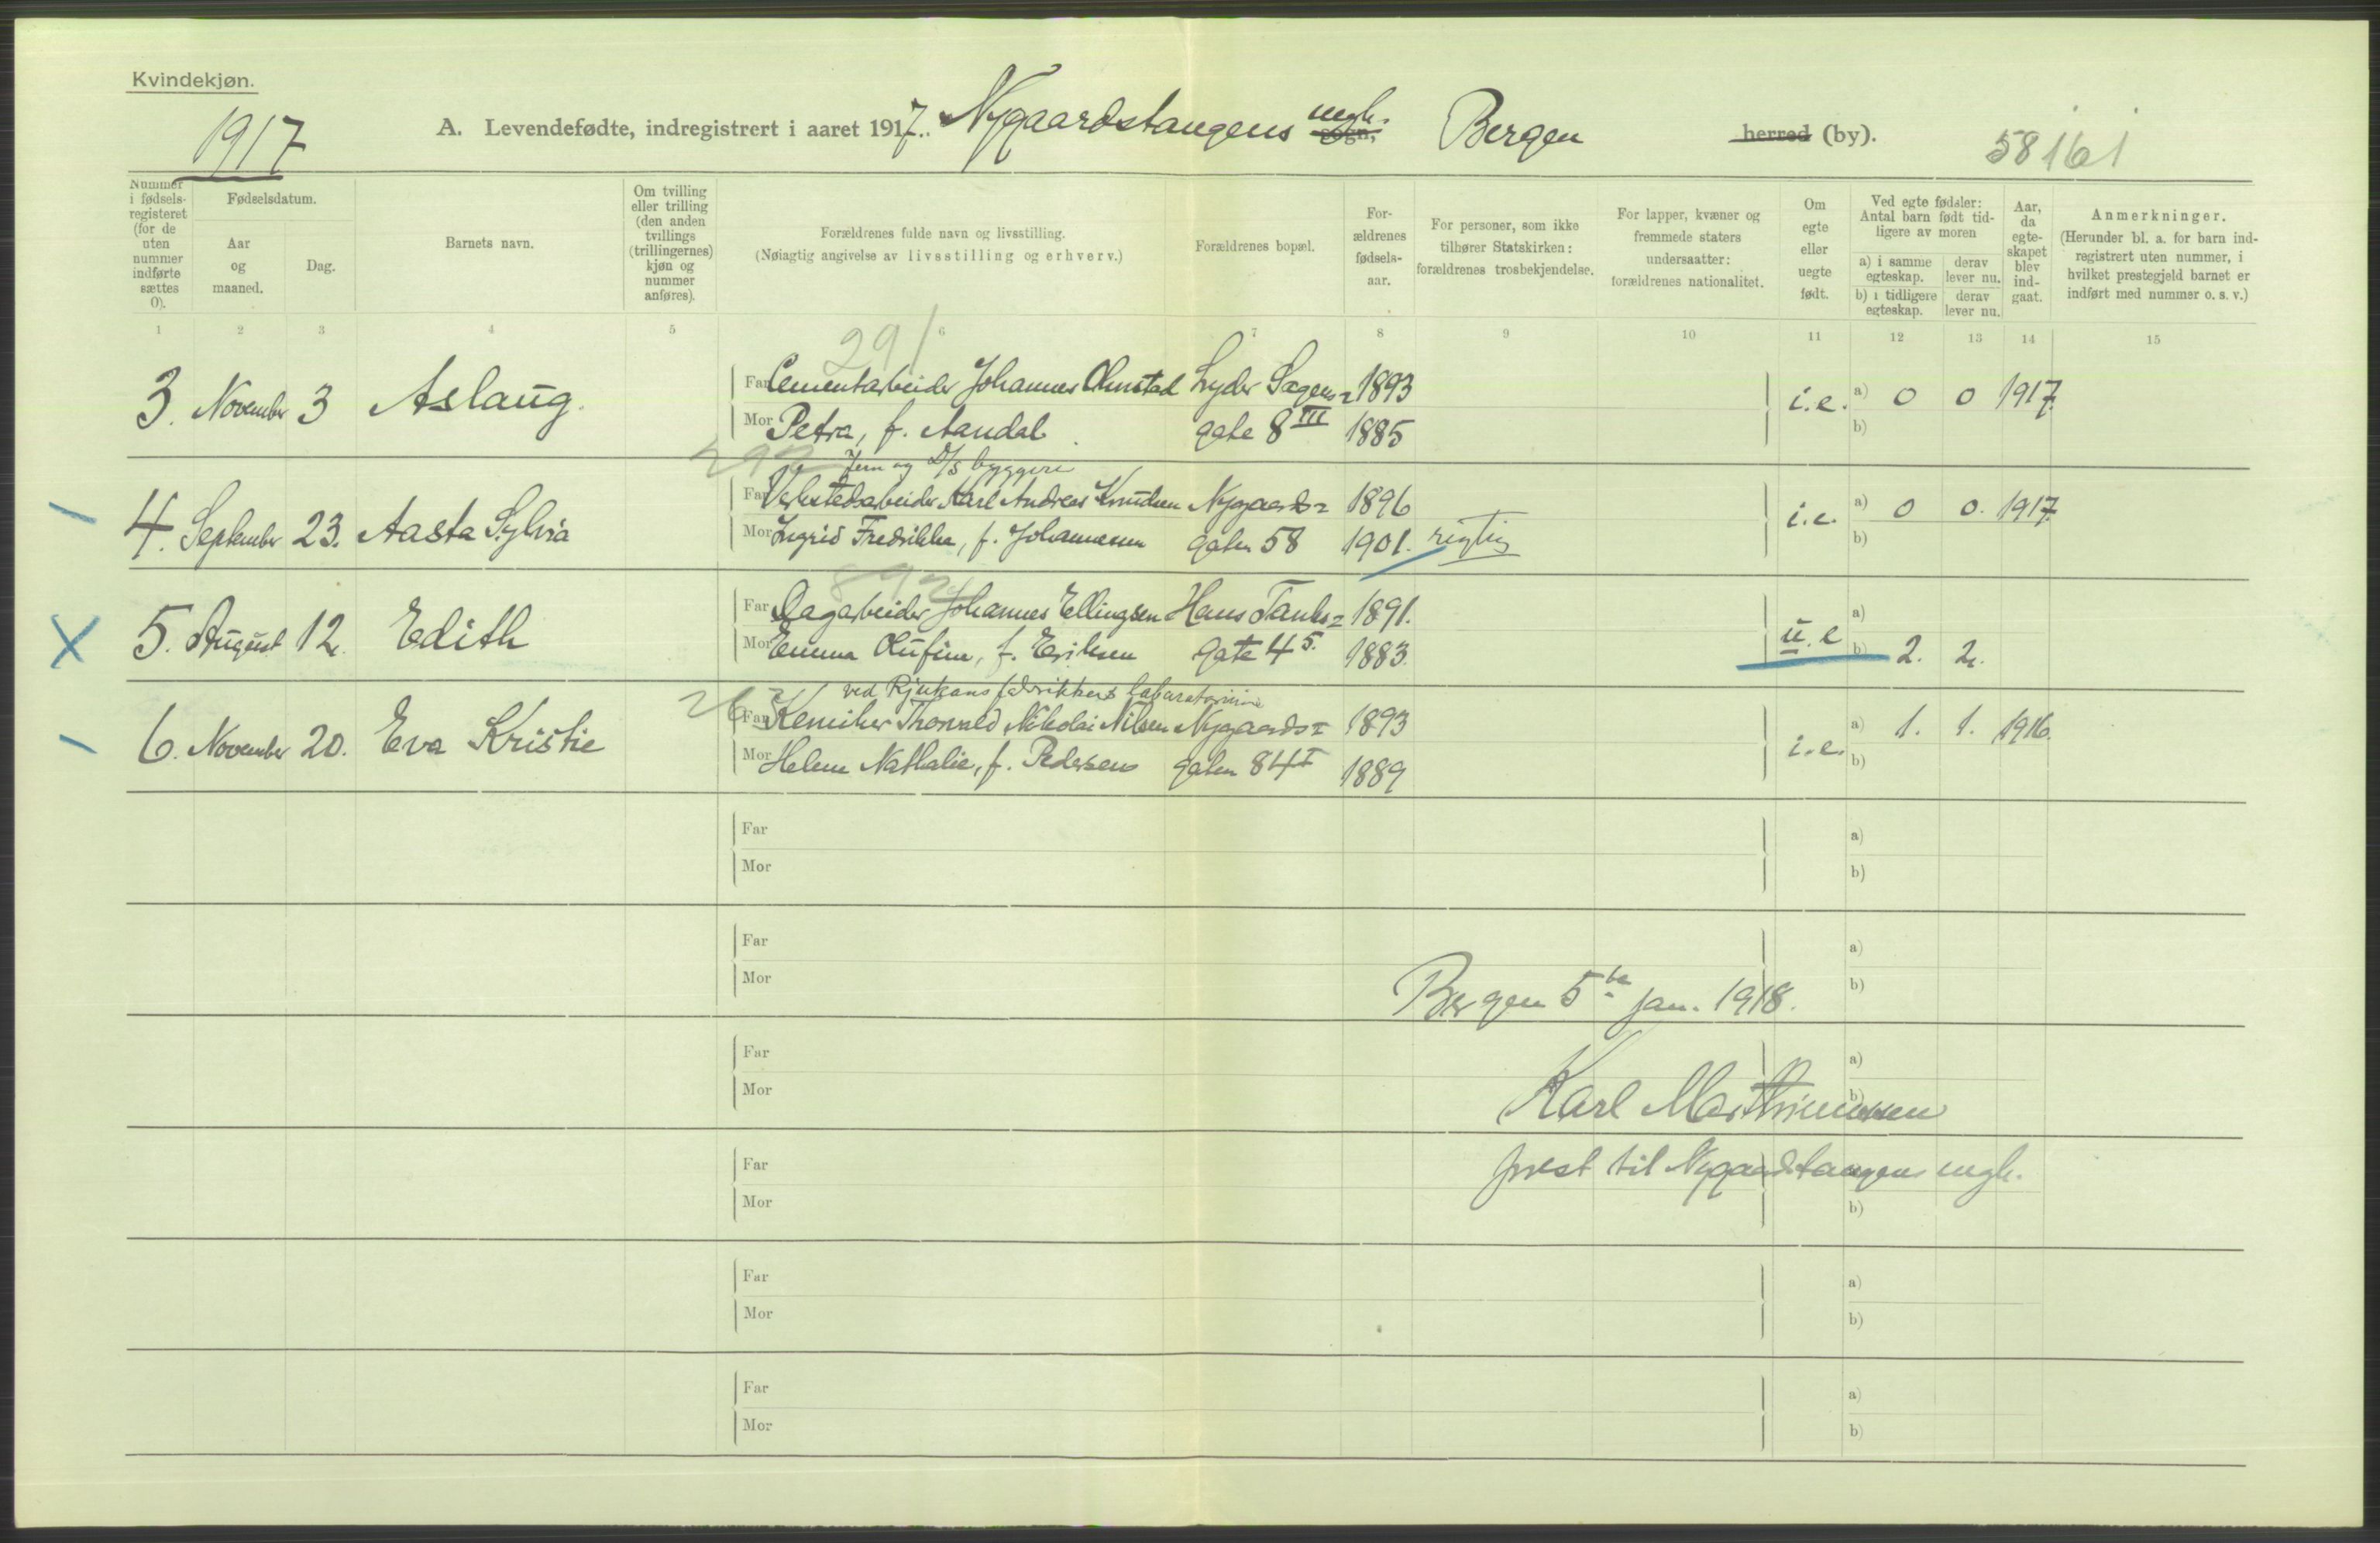 Kvindekjøn.
1917
A. Levendefødte, indregistrert i aaret 1917. Nygaardstangens mgh. sogn, Bergen herred (by).
58161
Nummer i fødselsregisteret (for de uten nummer indførte sættes 0).
Fødselsdatum.
Aar og maaned.
Dag.
Barnets navn.
Om tvilling eller trilling (den anden tvillings (trillingernes) kjøn og nummer anføres).
Forældrenes fulde navn og livsstilling.
(Nøiagtig angivelse av livsstilling og erhverv.)
Forældrenes bopæl.
Forældrenes fødselsaar.
For personer, som ikke tilhører Statskirken: forældrenes trosbekjendelse.
For lapper, kvæner og fremmede staters undersaatter: forældrenes nationalitet.
Om egte eller uegte født.
Ved egte fødsler: Antal barn født tidligere av moren
a) i samme egteskap. derav lever nu.
b) i tidligere egteskap. derav lever nu.
Aar, da egteskapet blev indgaat.
Anmerkninger.
(Herunder bl. a. for barn indregistrert uten nummer, i hvilket prestegjeld barnet er indført med nummer o. s. v.)
1 2 3 4 5 6 7 8 9 10 11 12 13 14 15
291
3. November 3 Aslaug. Far Cementarbeider Johannes Olmstad Lyder Sagens= 1893 i.e. a) 0 0 1917.
Mor Petra, f. Aandal. gate 8 III 1885 b)
Jern og D/s byggeri
4. September 23. Aasta Sylvia Far Verkstedsarbeider Karl Andreas Knudsen Nygaards= 1896 i.e. a) 0 0. 1917.
Mor Ingrid Fredrikke, f. Johannesen gaten 58 1901. rigtig b)
5. August 12. Edith Far Dagarbeider Johannes Ellingsen Hans Tanks= 1891. u.e a)
Mor Emma Rufine, f. Eriksen gate 4 5. 1883. b) 2. 2.
ved Rjukans fabrikkers laboratorium
6. November 20. Eva Kristie Far Kemiker Thorvald Nikolai Nilsen Nygaards= 1893 i.e. a) 1. 1. 1916.
Mor Helene Nathalie, f. Pedersen gaten 84 I 1889 b)
Far a)
Mor b)
Far a)
Mor b)
Bergen 5te jan. 1918.
Far a)
Mor b)
Karl Marthinussen
Far
prest til Nygaardstangens mgh.
Mor b)
Far a)
Mor b)
Far a)
Mor b)